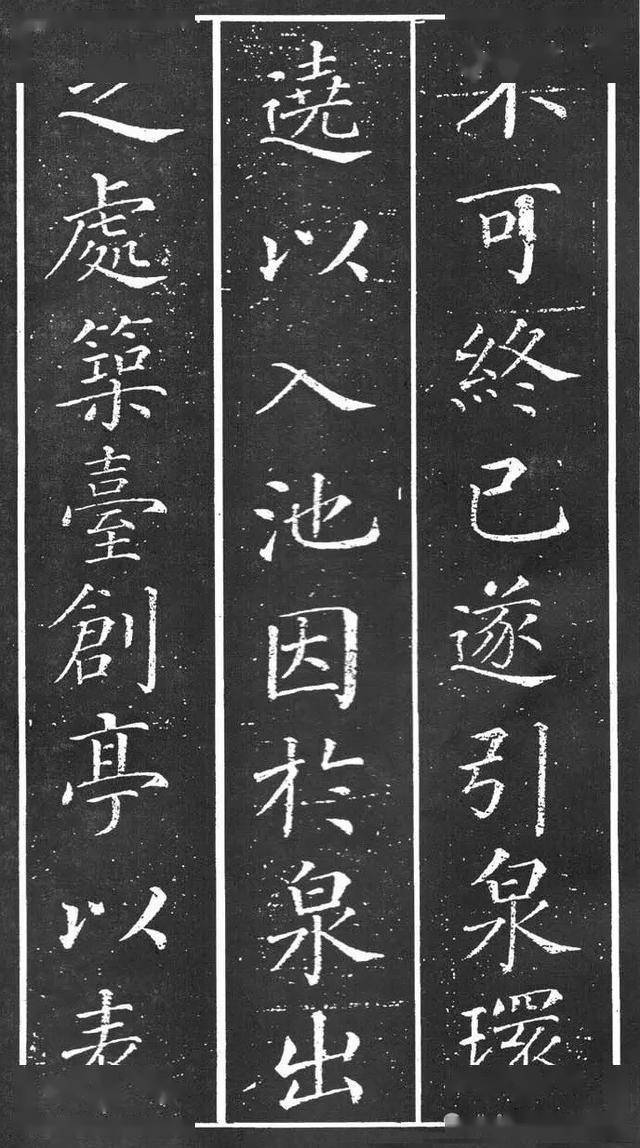 不可終已遂引泉環
遶以入池因於泉出
之處築臺創亭以表